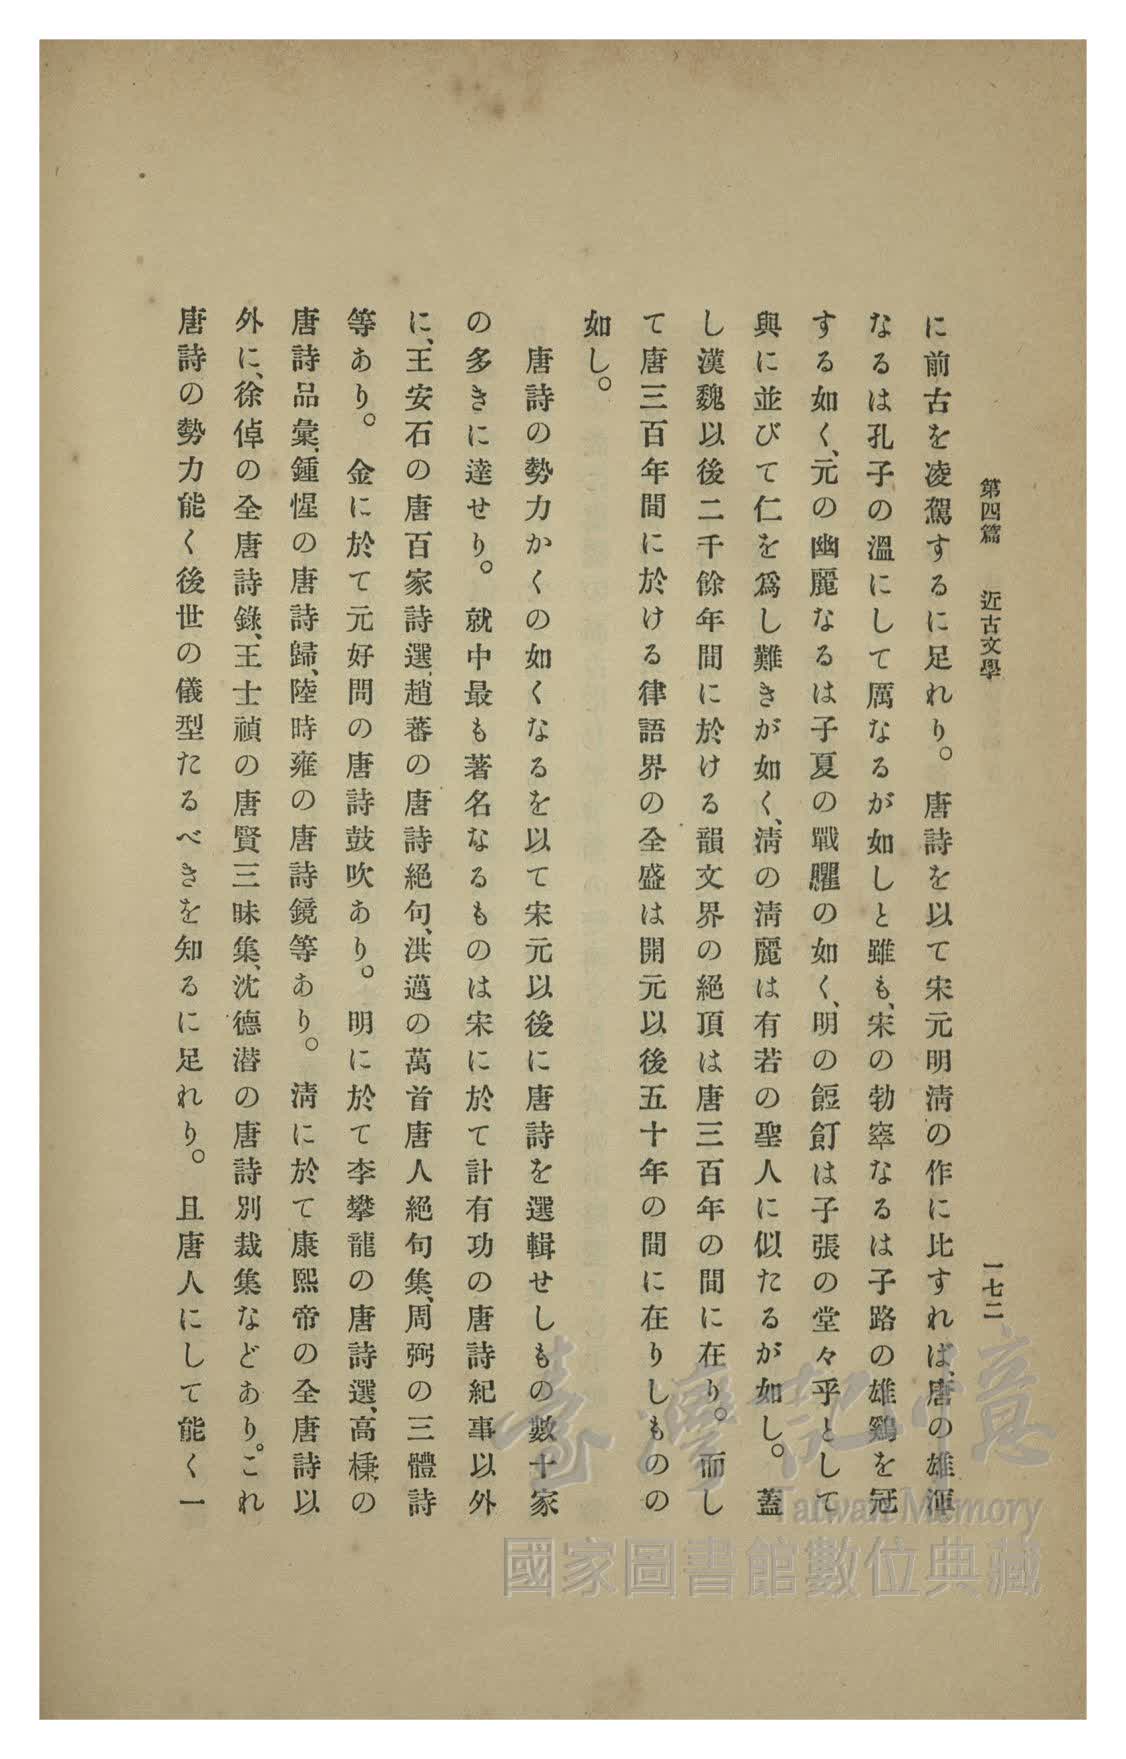 第四篇　近古文學　一七二
に前古を凌駕するに足れり。唐詩を以て宋元明淸の作に比すれば、唐の雄渾
なるは孔子の溫にして厲なるが如しと雖も、宋の勃窣なるは子路の雄鷄を冠
する如く、元の幽麗なるは子夏の戰臞の如く、明の餖飣は子張の堂々乎として
與に並びて仁を爲し難きが如く、淸の淸麗は有若の聖人に似たるが如し。蓋
し漢魏以後二千餘年間に於ける韻文界の絕頂は唐三百年の間に在り。而し
て唐三百年間に於ける律語界の全盛は開元以後五十年の間に在りしものの
如し。
唐詩の勢力かくの如くなるを以て宋元以後に唐詩を選輯せしもの數十家
の多きに達せり。就中最も著名なるものは宋に於て計有功の唐詩紀事以外
に、王安石の唐百家詩選、趙蕃の唐詩絕句、洪邁の萬首唐人絕句集、周弼の三體詩
等あり。金に於て元好問の唐詩鼓吹あり。明に於て李攀龍の唐詩選、高棅の
唐詩品彙、鍾惺の唐詩歸、陸時雍の唐詩鏡等あり。淸に於て康熙帝の全唐詩以
外に、徐倬の全唐詩錄、王士禎の唐賢三昧集、沈德潛の唐詩別裁集などあり。これ
唐詩の勢力能く後世の儀型たるべきを知るに足れり。且唐人にして能く一
臺灣記憶
Taiwan Memory
國家圖書館數位典藏